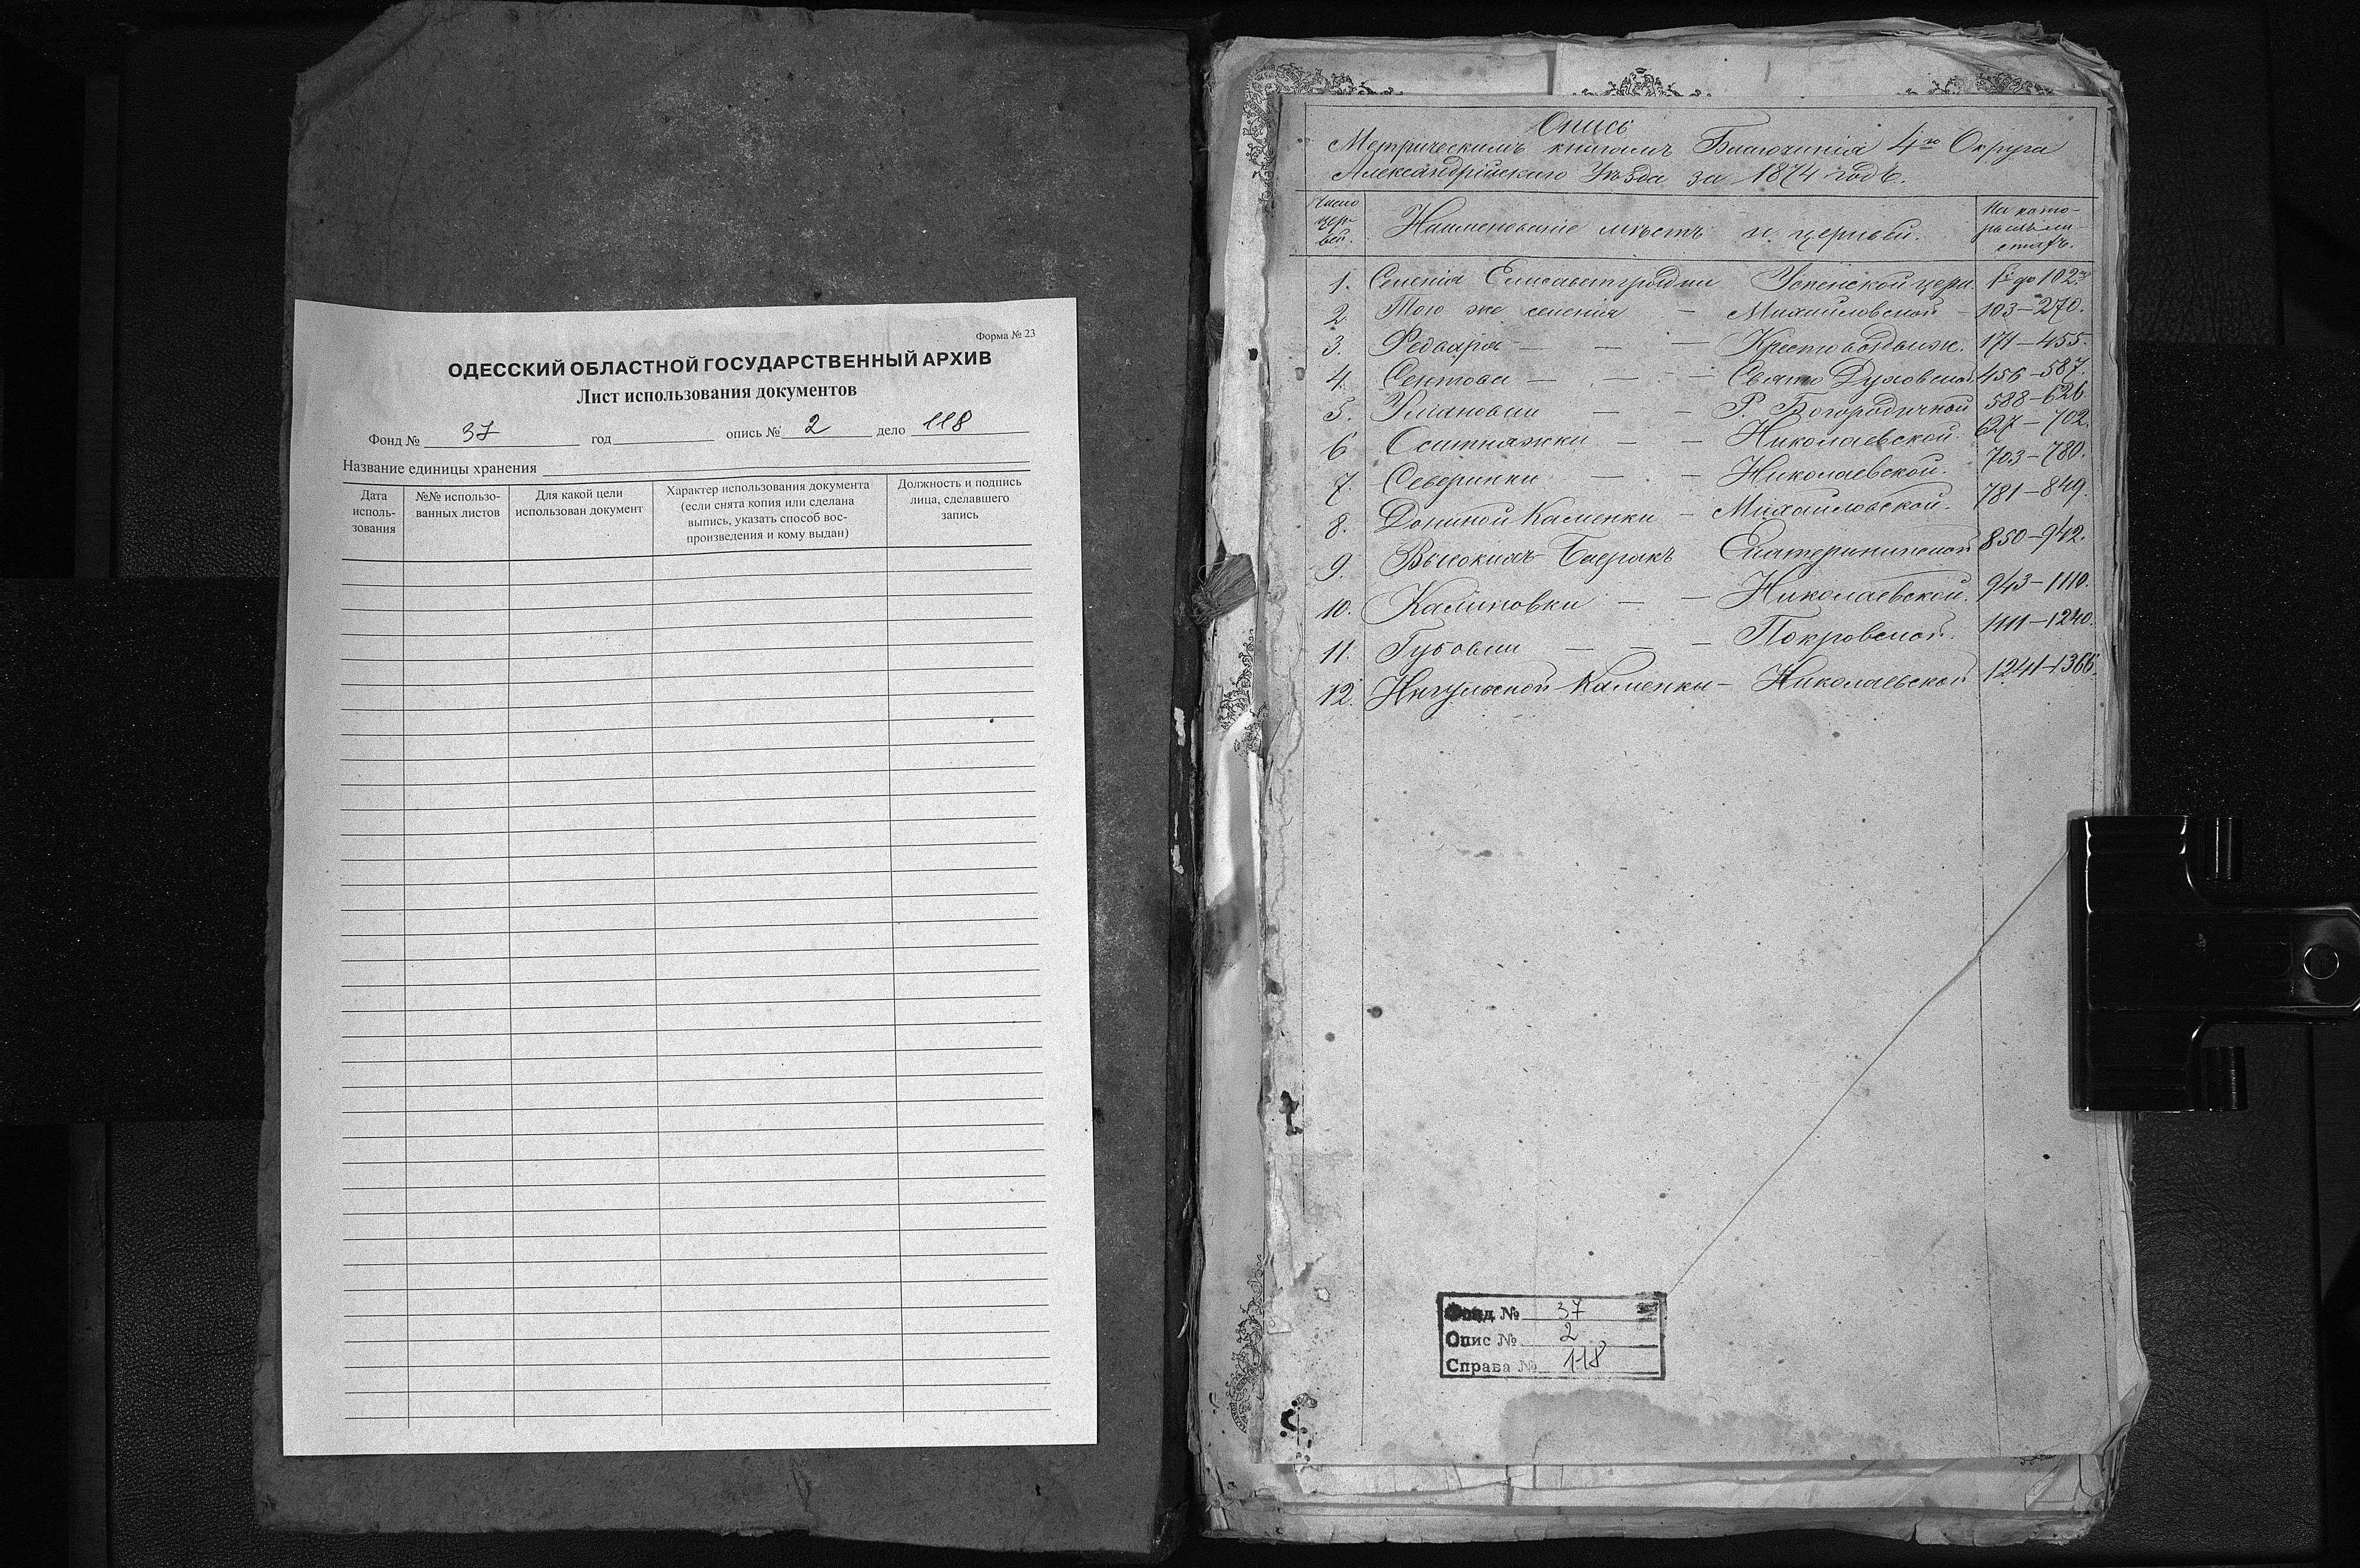 Форма № 23
ОДЕССКИЙ ОБЛАСТНОЙ ГОСУДАРСТВЕННЫЙ АРХИВ
Лист использования документов
Фонд № 37 год опись № 2 дело 118
Название единицы хранения
Дата использования
№№ использованных листов
Для какой цели использован документ
Характер использования документа (если снята копия или сделана выпись, указать способ воспроизведения и кому выдан)
Должность и подпись лица, сделавшего запись
Опись
Метрическимъ книгамъ Благочинія 4го Округа
Александрійскаго Уѣзда за 1874 годъ.
Число церквей.
Наименованіе мѣстъ и церквей.
На которыхъ листахъ.
1. Селенія Елисаветградки Успенской церк. 1й до 102й
2. Того же селенія — Михайловской — 103–270.
3. Федвара — — — Крестовоздвиж. 171–455.
4. Сентова — — — Свято Духовской 456–587.
5. Улановки — — Р. Богородичной 588–626.
6 Оситняжки — — Николаевской 627–702.
7. Северинки — — Николаевской. 703–780.
8. Долиной Каменки — Михайловской. 781–849.
9. Высокихъ Баеракъ Екатерининской 850–942.
10. Калиновки — — Николаевской. 943–1110.
11. Губовки — — — Покровской. 1111–1240.
12. Ингульской Каменки – Николаевской 1241–1366.
Фонд № 37
Опис № 2
Справа № 118